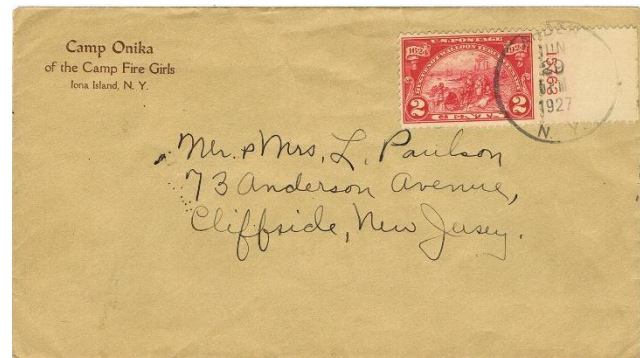 Camp Onika
of the Camp Fire Girls
Iona Island, N. Y.
U.S. POSTAGE
1624 1924
2 2
CENTS
JUN
1927
N. Y.
Mr. & Mrs. L. Paulson
73 Anderson Avenue,
Cliffside, New Jersey.